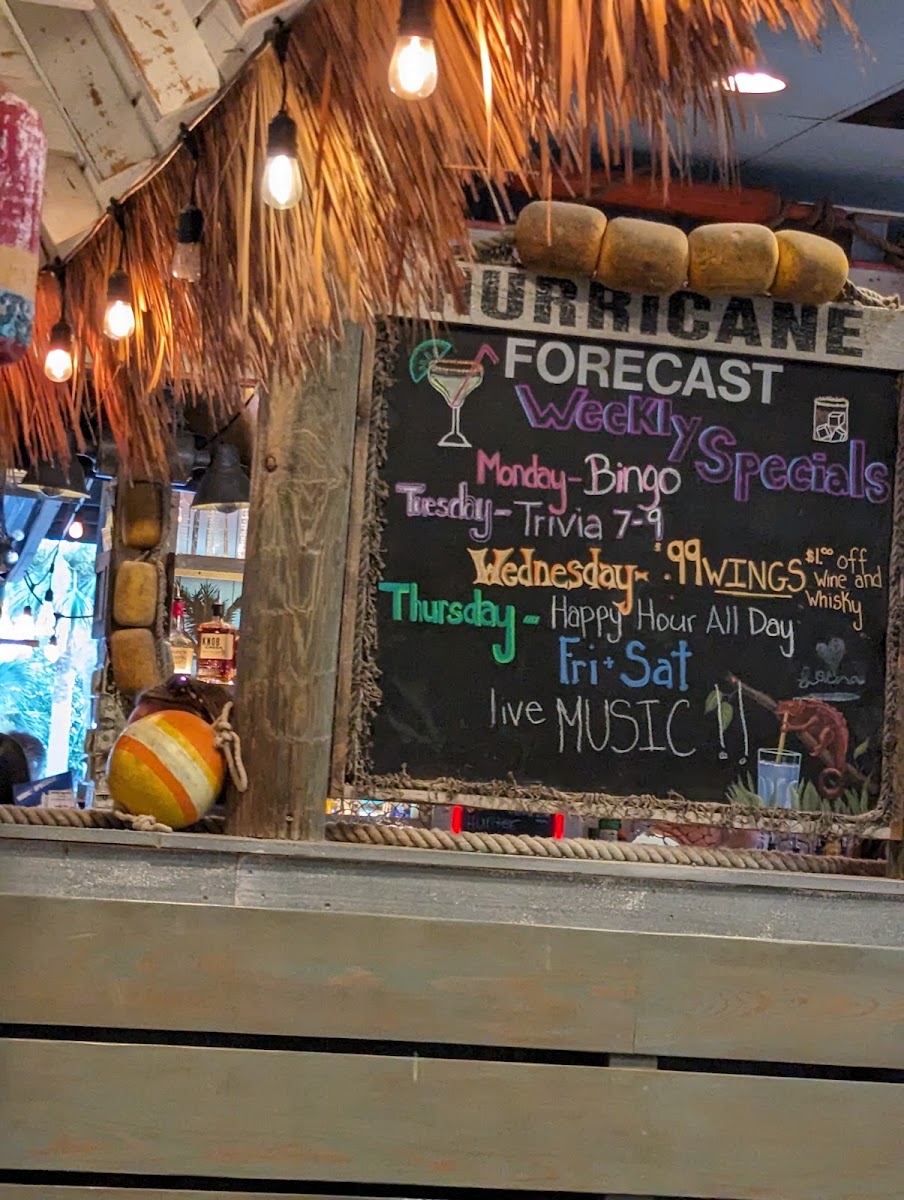 HURRICANE
FORECAST
Weekly
Specials
Monday - Bingo
Tuesday - Trivia 7-9
Wednesday - $.99 WINGS $1.00 off
wine and
whisky
Thursday - Happy Hour All Day
Fri + Sat
live MUSIC !!
KNOB
Hunter